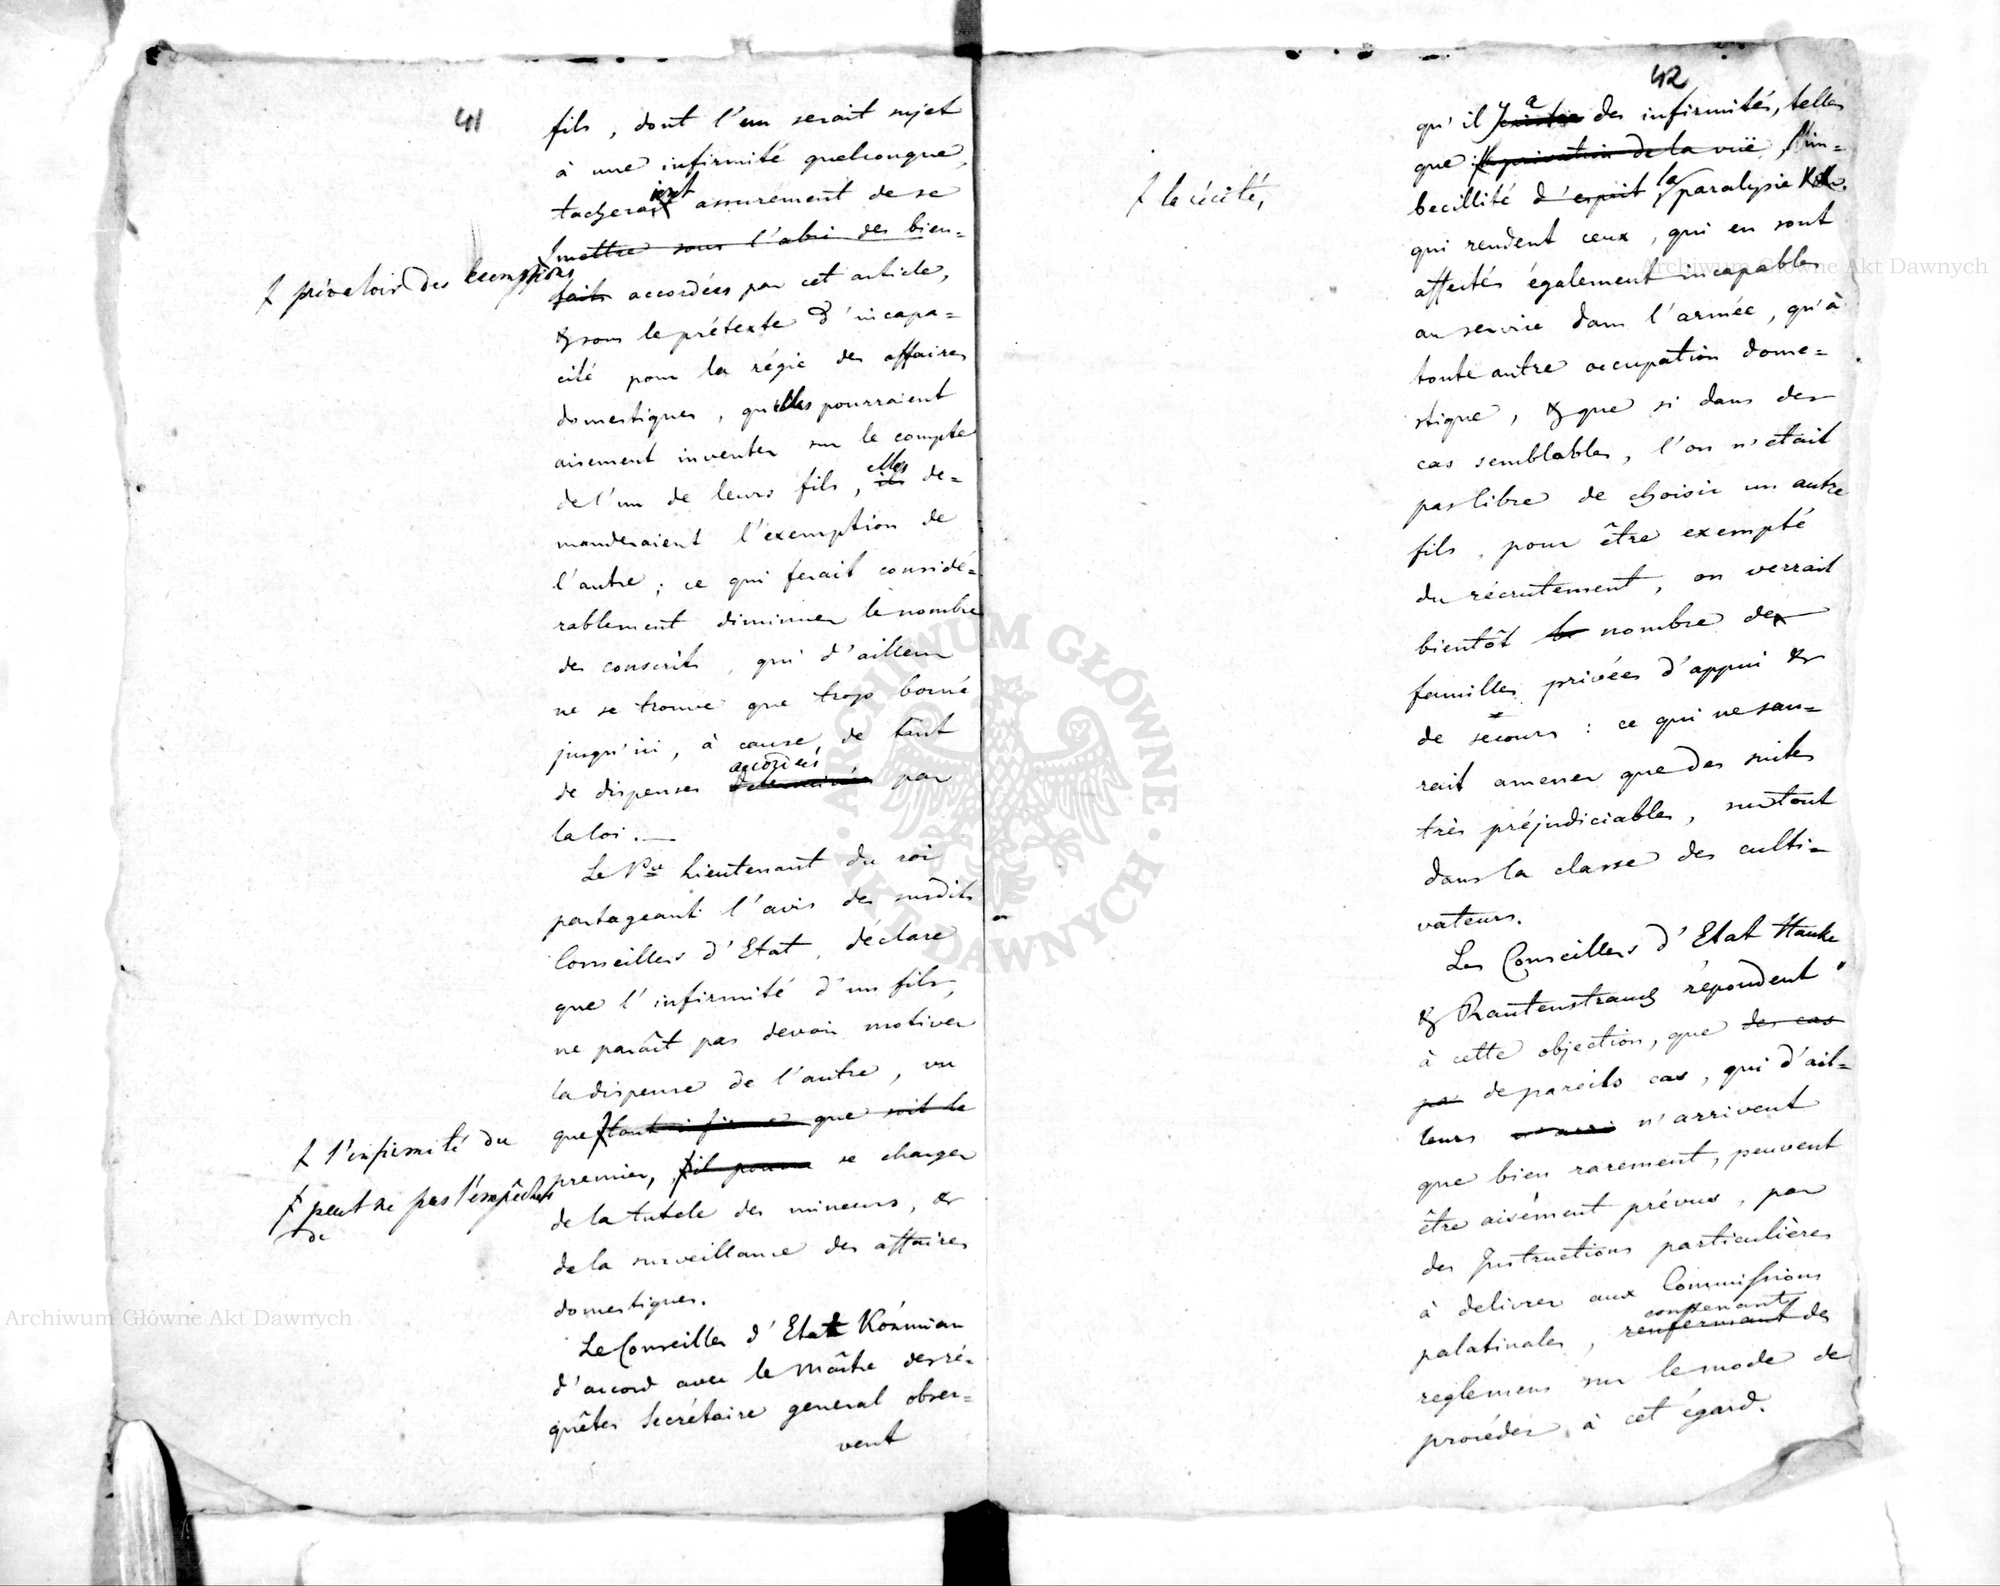 41
fils, dont l'un serait sujet
à une infirmité quelconque,
tacheraient assurément de se
mettre sous l'abri des bien=
⨍ prévaloir des exemptions
faits accordées par cet article,
& sous le prétexte d'incapa=
cité pour la régie des affaires
domestiques, qu'elles pourraient
aisement inventer sur le compte
de l'un de leurs fils, ils elles de=
manderaient l'exemption de
l'autre; ce qui ferait considé=
rablement diminuer le nombre
des conscrits, qui d'ailleurs
ne se trouve que trop borné
jusqu'ici, à cause, de tant
accordées
de dispenses par
la loi.—
Le Pce Lieutenant du roi
partageant l'avis des susdits
Conseillers d'Etat, déclare
que l'infirmité d'un fils,
ne paraît pas devoir motiver
la dispense de l'autre, vu
que tout infirme que soit le
⨍ l'infirmité du
premier, il pourra se charger
⨍ peut ne pas l'empêcher
de
de la tutele des mineurs, &
de la surveillance des affaires
domestiques.
Le Conseiller d'Etat Koźmian
d'accord avec le Maître des ré=
quêtes Secrétaire general obser=
vent
42
qu'il existe a des infirmités, telles
que la privation de la vuë, l'im=
⨍ la cécité,
becillité d'esprit la paralysie &c.
qui rendent ceux, qui en sont
affectés également incapables
au service dans l'armée, qu'à
toute autre occupation dome=
stique, & que si dans des
cas semblables, l'on n'etait
pas libre de choisir un autre
fils, pour être exempté
du récrutement, on verrait
bientôt le nombre des
familles privées d'appui &
de secours: ce qui ne sau=
rait amener que des suites
très préjudiciables, surtout
dans la classe des culti=
vateurs.
Les Conseillers d'Etat Hauke
& Rautenstrauch répondent
à cette objection, que des cas
pa de pareils cas, qui d'ail=
leurs n'arri n'arrivent
que bien rarement, peuvent
être aisément prévus, par
des Instructions particulières
à delivrer aux Commissions
contenant
palatinales, renfermant des
reglemens sur le mode de
procéder à cet égard.
Archiwum Główne Akt Dawnych
Archiwum Główne Akt Dawnych
ARCHIWUM GŁÓWNE · AKT DAWNYCH ·